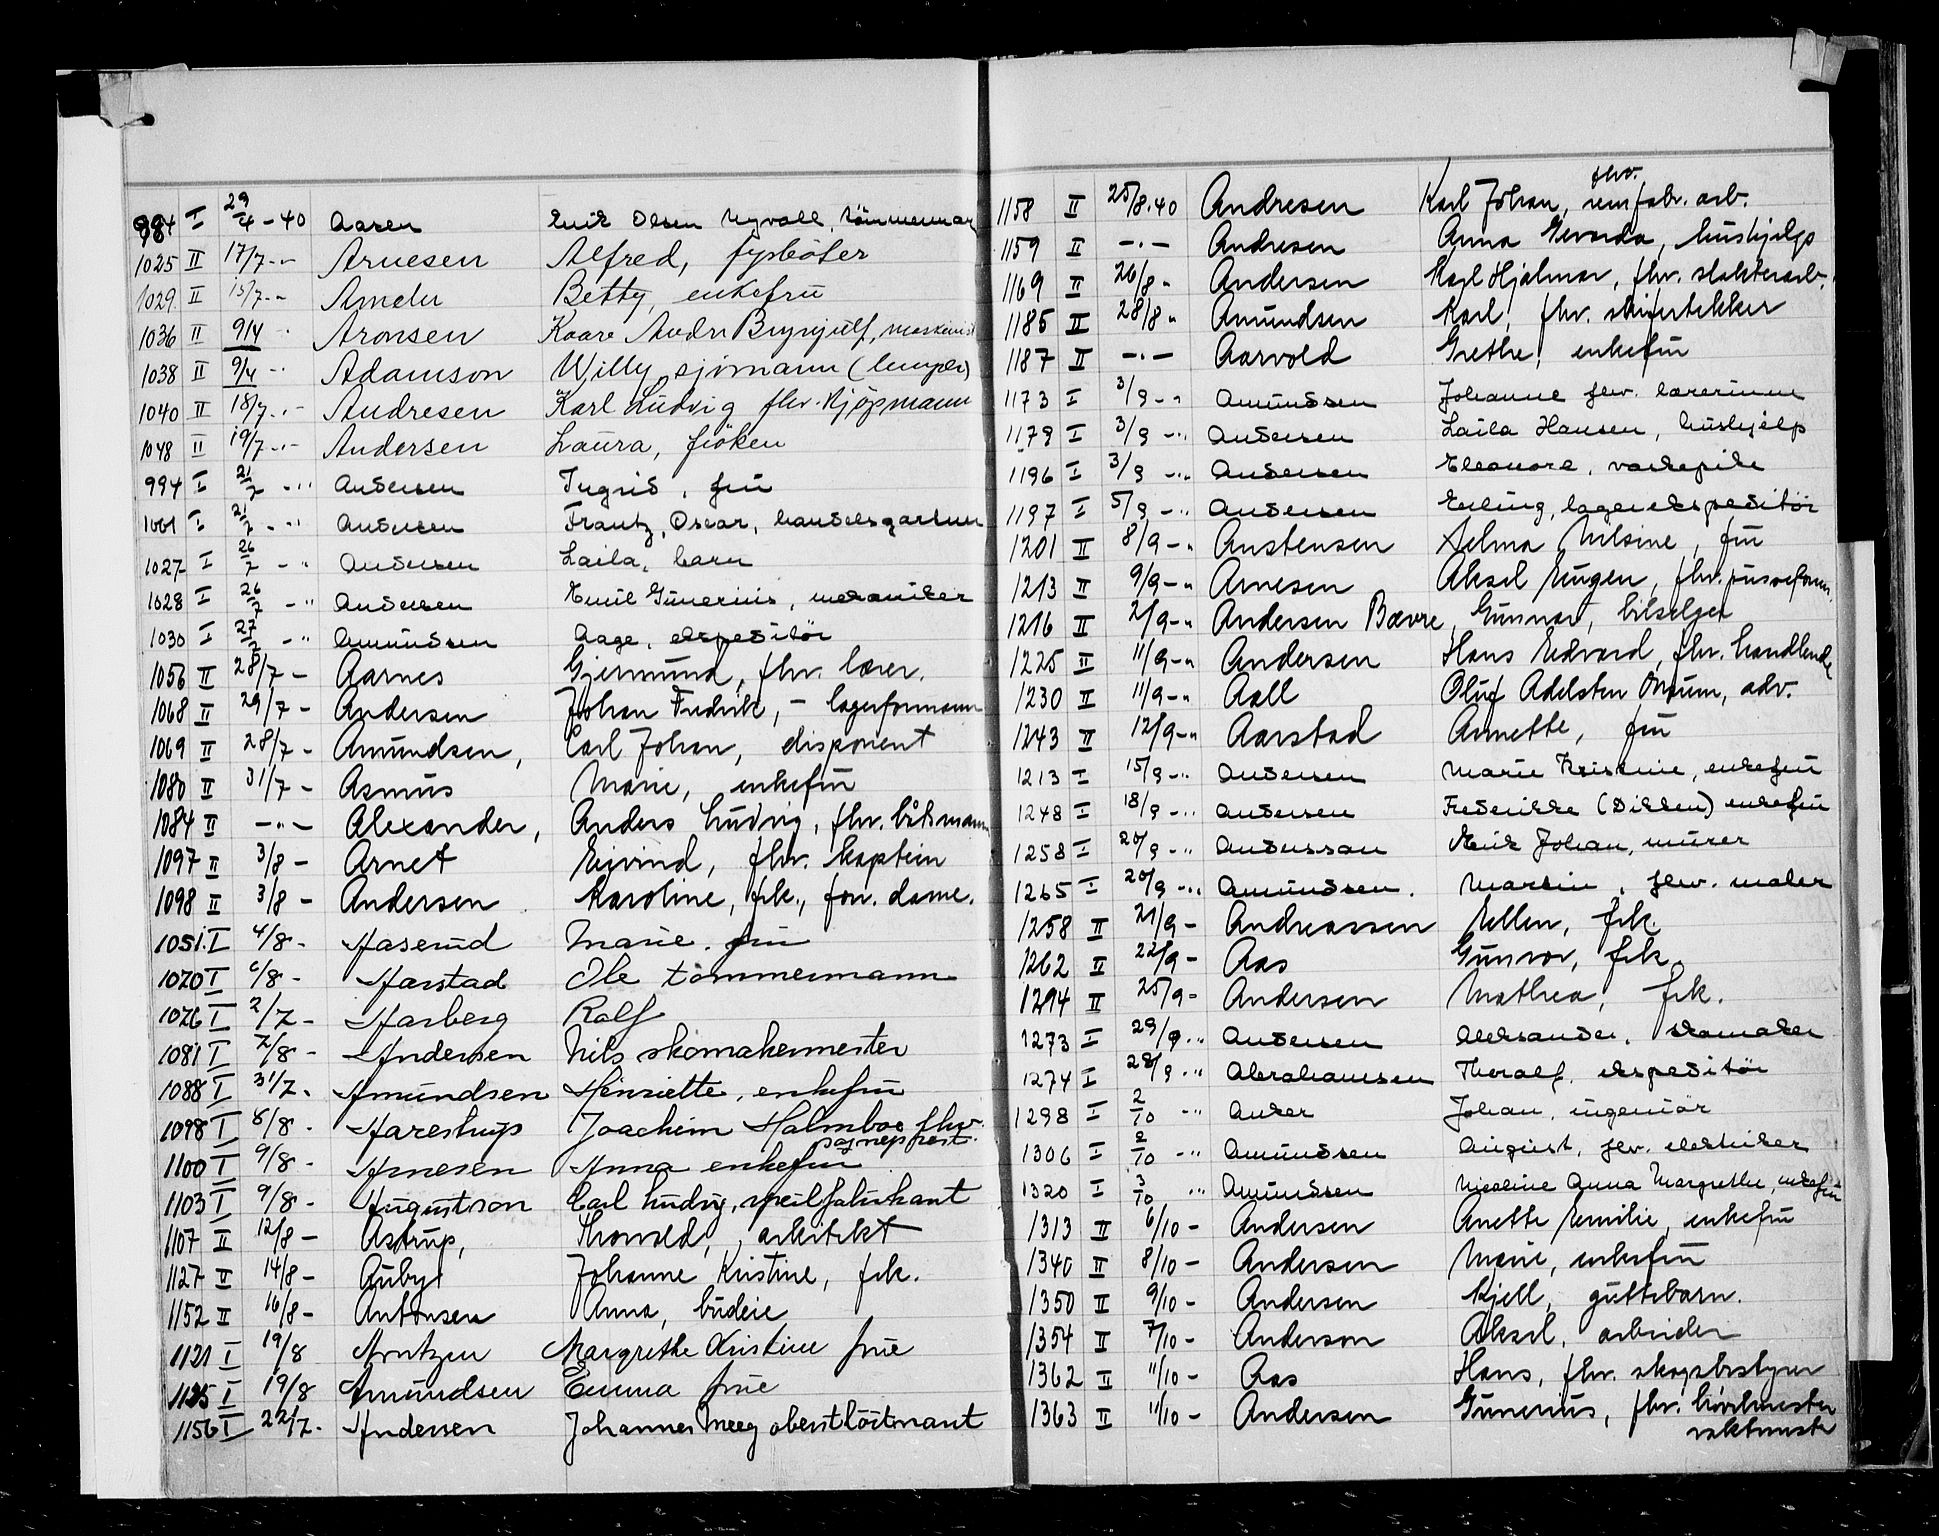 984 I 29/4 - 40 Aasen Erik Olsen Nyvoll, tömmermann
1025 II 17/7 -"- Arnesen Alfred, fyrbøter
1029 II 15/7 -"- Amdu Betty, enkefru
1036 II 9/4 -"- Aronsen Kaare Andr Brynjulf, maskinist
1038 II 9/4 -"- Adamson Willy sjömann (lemper)
1040 II 18/7 -"- Andresen Karl Ludvig fhv. kjöpmann
1048 II 19/7 -"- Andersen Laura, fröken
994 I 21/7 -"- Andersen Ingrid, fru
1001 I 21/7 -"- Andersen Frantz, Oscar, handelsgartner
1027 I 26/7 -"- Andersen Laila, barn
1028 I 26/7 -"- Andersen Emil Gunerius, mekaniker
1030 I 27/7 -"- Amundsen Aage, ekspeditör
1056 II 28/7 - Aarnes Gjermund, fhv. lærer.
1068 II 29/7 - Andersen Johan Fredrik, - lagerformann
1069 II 28/7 - Amundsen, Carl Johan, disponent
1080 II 31/7 - Asmus Marie, enkefru
1084 II -"- Alexander, Anders Ludvig, fhv. båtsmann
1097 II 3/8 - Arnet Eivind, fhv. kaptein
1098 II 3/8 - Andersen Karoline, frk., forr. dame.
1051. I 4/8 - Aaserud Marie. fru
1020 I 6/8 - Aarstad Ole tömmermann
1026 I 2/7 - Aarberg Rolf
1081 I 7/8 - Andersen Nils skomakermester
1088 I 31/7 - Amundsen Henriette, enkefru
1098 I 8/8 - Aarestrup Joachim Holmboe fhv. sogneprest.
1100 I 9/8 - Arnesen Anna enkefru
1103 I 9/8 - Augustson Carl Ludvig, speilfabrikant
1107 II 12/8 - Astrup, Thorvald, arkitekt
1127 II 14/8 - Auby Johanne Kristine, frk.
1152 II 16/8 - Antonsen Anna, budeie
1121 I 19/8 Arntzen Margrethe Kristine frue
1125 I 19/8 Amundsen Emma frue
1156 I 22/7. Andersen Johannes Meeg oberstlöitnant
1158 II 25/8.40 Andresen Karl Johan, fhv. remfabr. arb.
1159 II -"- Andresen Anna Gevarda, hushjelp
1169 II 26/8 " Andersen Karl Hjalmar, fhv. slakterarb.
1185 II 28/8 " Amundsen Karl, fhv. skifertekker
1187 II -"- Aarvold Grethe, enkefru
1173 I 3/9 -"- Amundsen Johanne fhv. lærerinne
1179 I 3/9 -"- Andersen Laila Hansen, hushjelp
1196 I 3/9 -"- Andersen Eleonore, vaskepike
1197 I 5/9 -"- Andersen Erling, lagerekspeditör
1201 II 8/9 -" Anstensen Selma Nilsine, fru
1213 II 9/9 -" Arnesen Aksel Eugen, fhv. pusseform.
1216 II 2/9 -" Andersen Bævre, Gunnar, bilselger
1225 II 11/9 -" Andersen Hans Edvard, fhv. handlende
1230 II 11/9 -" Aall Oluf Adelsten Onsum, adv.
1243 II 12/9 -" Aarstad Annette, fru
1213 I 15/9 -"- Andersen Marie Kristine, enkefru
1248 I 18/9 -"- Andersen Frederikke (Dikken) enkefru
1258 I 20/9 -"- Andersson Erik Johan, murer
1265 I 20/9 -"- Amundsen. Martin, fhv. maler
1258 II 21/9 - Andreassen Ellen, frk.
1262 II 22/9 - Aas Gunvor, frk.
1294 II 25/9 - Andersen Mathea, frk.
1273 I 29/9 -"- Andersen Aleksander, skomaker
1274 I 28/9 -"- Abrahamsen Thoralf, ekspeditör
1298 I 2/10 -"- Anker Johan, ingeniör
1306 I 2/10 -"- Amundsen August, fhv. elektriker
1320 I 3/10 -"- Amundsen Nicoline Anna Margrethe, enkefru
1313 II 6/10 - Andersen Anette Emilie, enkefru
1340 II 8/10 - Andersen Marie, enkefru
1350 II 9/10 - Andersen Kjell, guttebarn.
1354 II 7/10 - Anderson Aksel, arbeider
1362 II 11/10 - Aas Hans, fhv. skogbestyrer
1363 II 11/10 - Andersen Gunerius, fhv. hövelmester
vaktmester